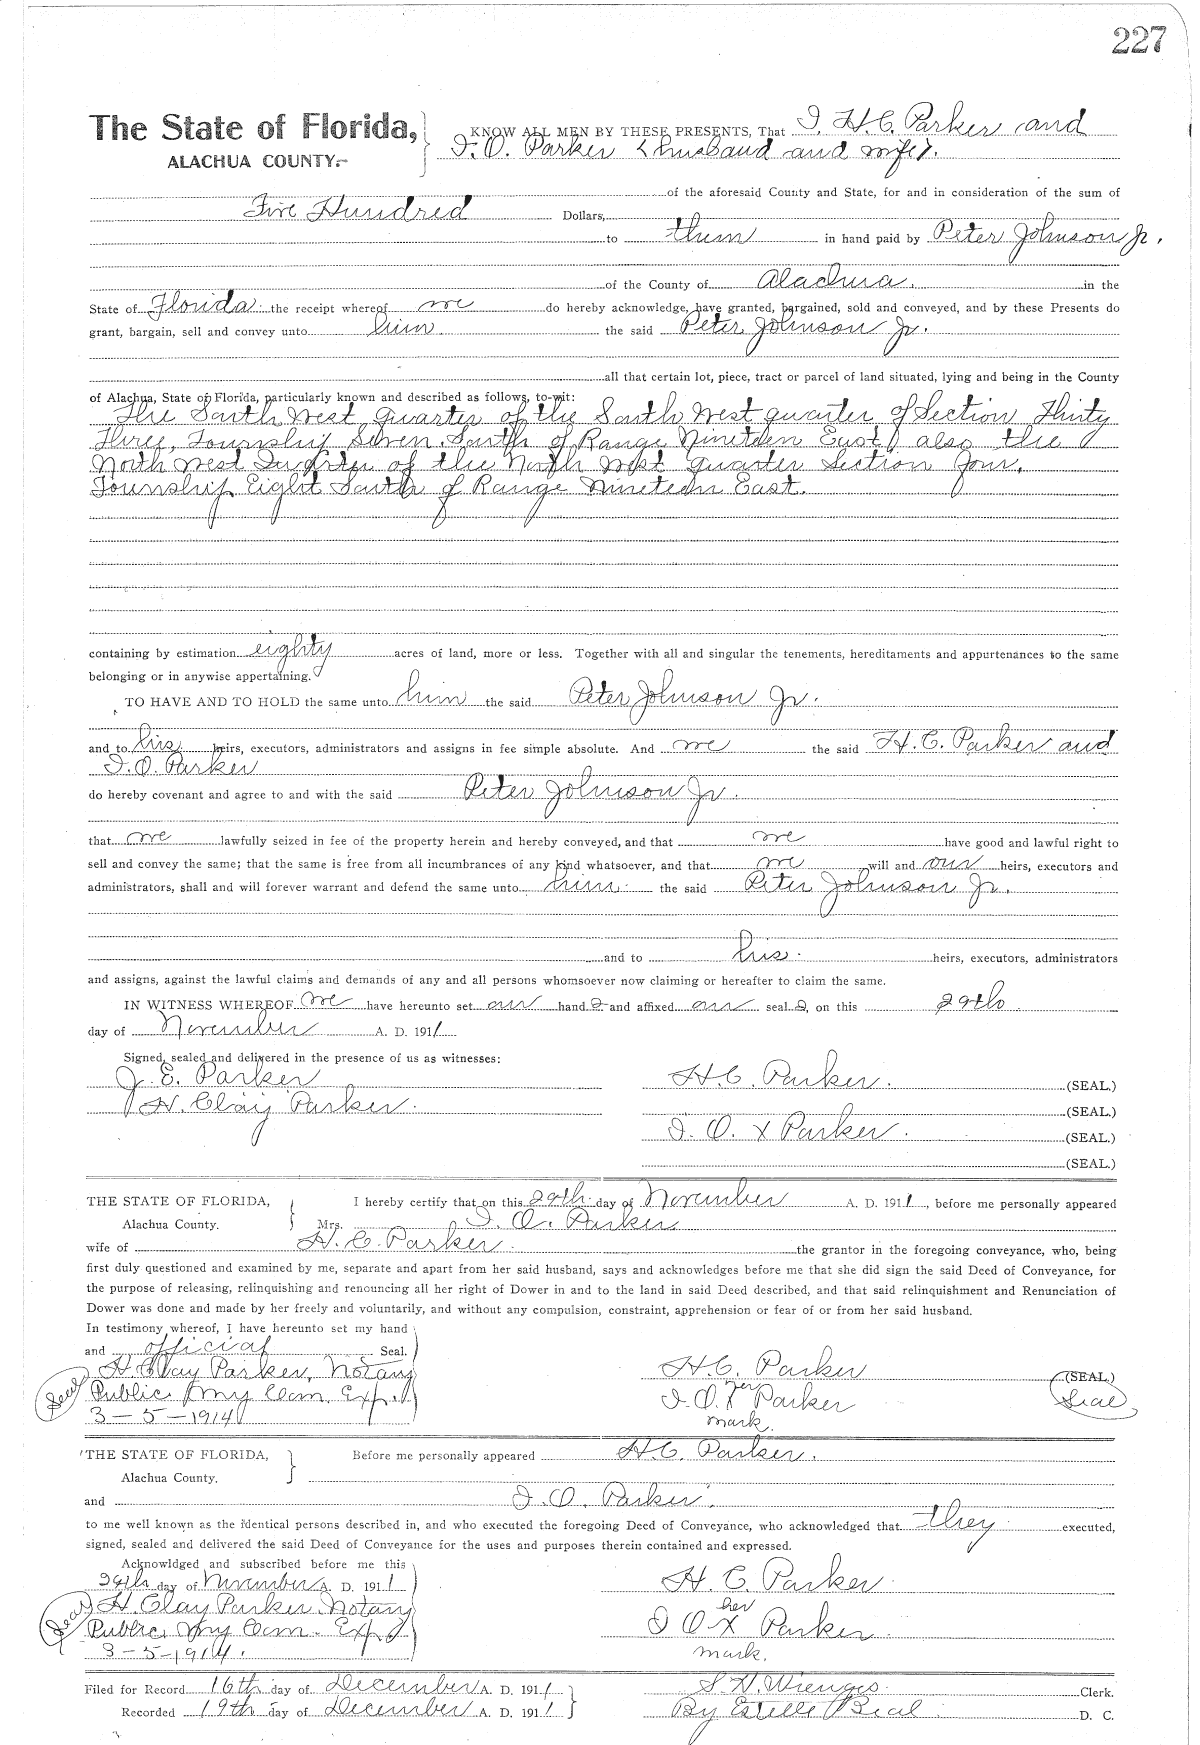 227
The State of Florida, KNOW ALL MEN BY THESE PRESENTS, That I, H. C. Parker and
ALACHUA COUNTY. I. O. Parker (husband and wife).
of the aforesaid County and State, for and in consideration of the sum of
Five Hundred Dollars,
to them in hand paid by Peter Johnson Jr.
of the County of Alachua, in the
State of Florida the receipt whereof we do hereby acknowledge, have granted, bargained, sold and conveyed, and by these Presents do
grant, bargain, sell and convey unto him the said Peter Johnson Jr.
all that certain lot, piece, tract or parcel of land situated, lying and being in the County
of Alachua, State of Florida, particularly known and described as follows, to-wit:
The South West quarter of the South West quarter of Section Thirty
Three, Township Seven South of Range Nineteen East, also the
North West Quarter of the North West quarter Section four,
Township Eight South of Range Nineteen East.
containing by estimation eighty acres of land, more or less. Together with all and singular the tenements, hereditaments and appurtenances to the same
belonging or in anywise appertaining.
TO HAVE AND TO HOLD the same unto him the said Peter Johnson Jr.
and to his heirs, executors, administrators and assigns in fee simple absolute. And we the said H. C. Parker and
I. O. Parker
do hereby covenant and agree to and with the said Peter Johnson Jr.
that we lawfully seized in fee of the property herein and hereby conveyed, and that we have good and lawful right to
sell and convey the same; that the same is free from all incumbrances of any kind whatsoever, and that we will and our heirs, executors and
administrators, shall and will forever warrant and defend the same unto him the said Peter Johnson Jr.
and to his heirs, executors, administrators
and assigns, against the lawful claims and demands of any and all persons whomsoever now claiming or hereafter to claim the same.
IN WITNESS WHEREOF we have hereunto set our hand s and affixed our seal s, on this 29th
day of November A. D. 1911
Signed, sealed and delivered in the presence of us as witnesses:
J. E. Parker H. C. Parker. (SEAL.)
H. Clay Parker. (SEAL.)
I. O. X Parker. (SEAL.)
(SEAL.)
THE STATE OF FLORIDA, I hereby certify that on this 29th day of November A. D. 1911, before me personally appeared
Alachua County. Mrs. I. O. Parker
wife of H. C. Parker the grantor in the foregoing conveyance, who, being
first duly questioned and examined by me, separate and apart from her said husband, says and acknowledges before me that she did sign the said Deed of Conveyance, for
the purpose of releasing, relinquishing and renouncing all her right of Dower in and to the land in said Deed described, and that said relinquishment and Renunciation of
Dower was done and made by her freely and voluntarily, and without any compulsion, constraint, apprehension or fear of or from her said husband.
In testimony whereof, I have hereunto set my hand
and official Seal.
H Clay Parker, Notary H. C. Parker (SEAL.)
Seal Public My Com. Exp. I. O. X her Parker Seal
3-5-1914 mark.
THE STATE OF FLORIDA, Before me personally appeared H. C. Parker.
Alachua County.
and I. O. Parker.
to me well known as the identical persons described in, and who executed the foregoing Deed of Conveyance, who acknowledged that they executed,
signed, sealed and delivered the said Deed of Conveyance for the uses and purposes therein contained and expressed.
Acknowldged and subscribed before me this
29th day of November A. D. 1911 H. C. Parker
Seal H. Clay Parker, Notary her
Public My Com. Exp I O X Parker
3-5-1914. mark.
Filed for Record 16th day of December A. D. 1911 S. H. Wienges Clerk.
Recorded 19th day of December A. D. 1911 By Estelle Beal D. C.